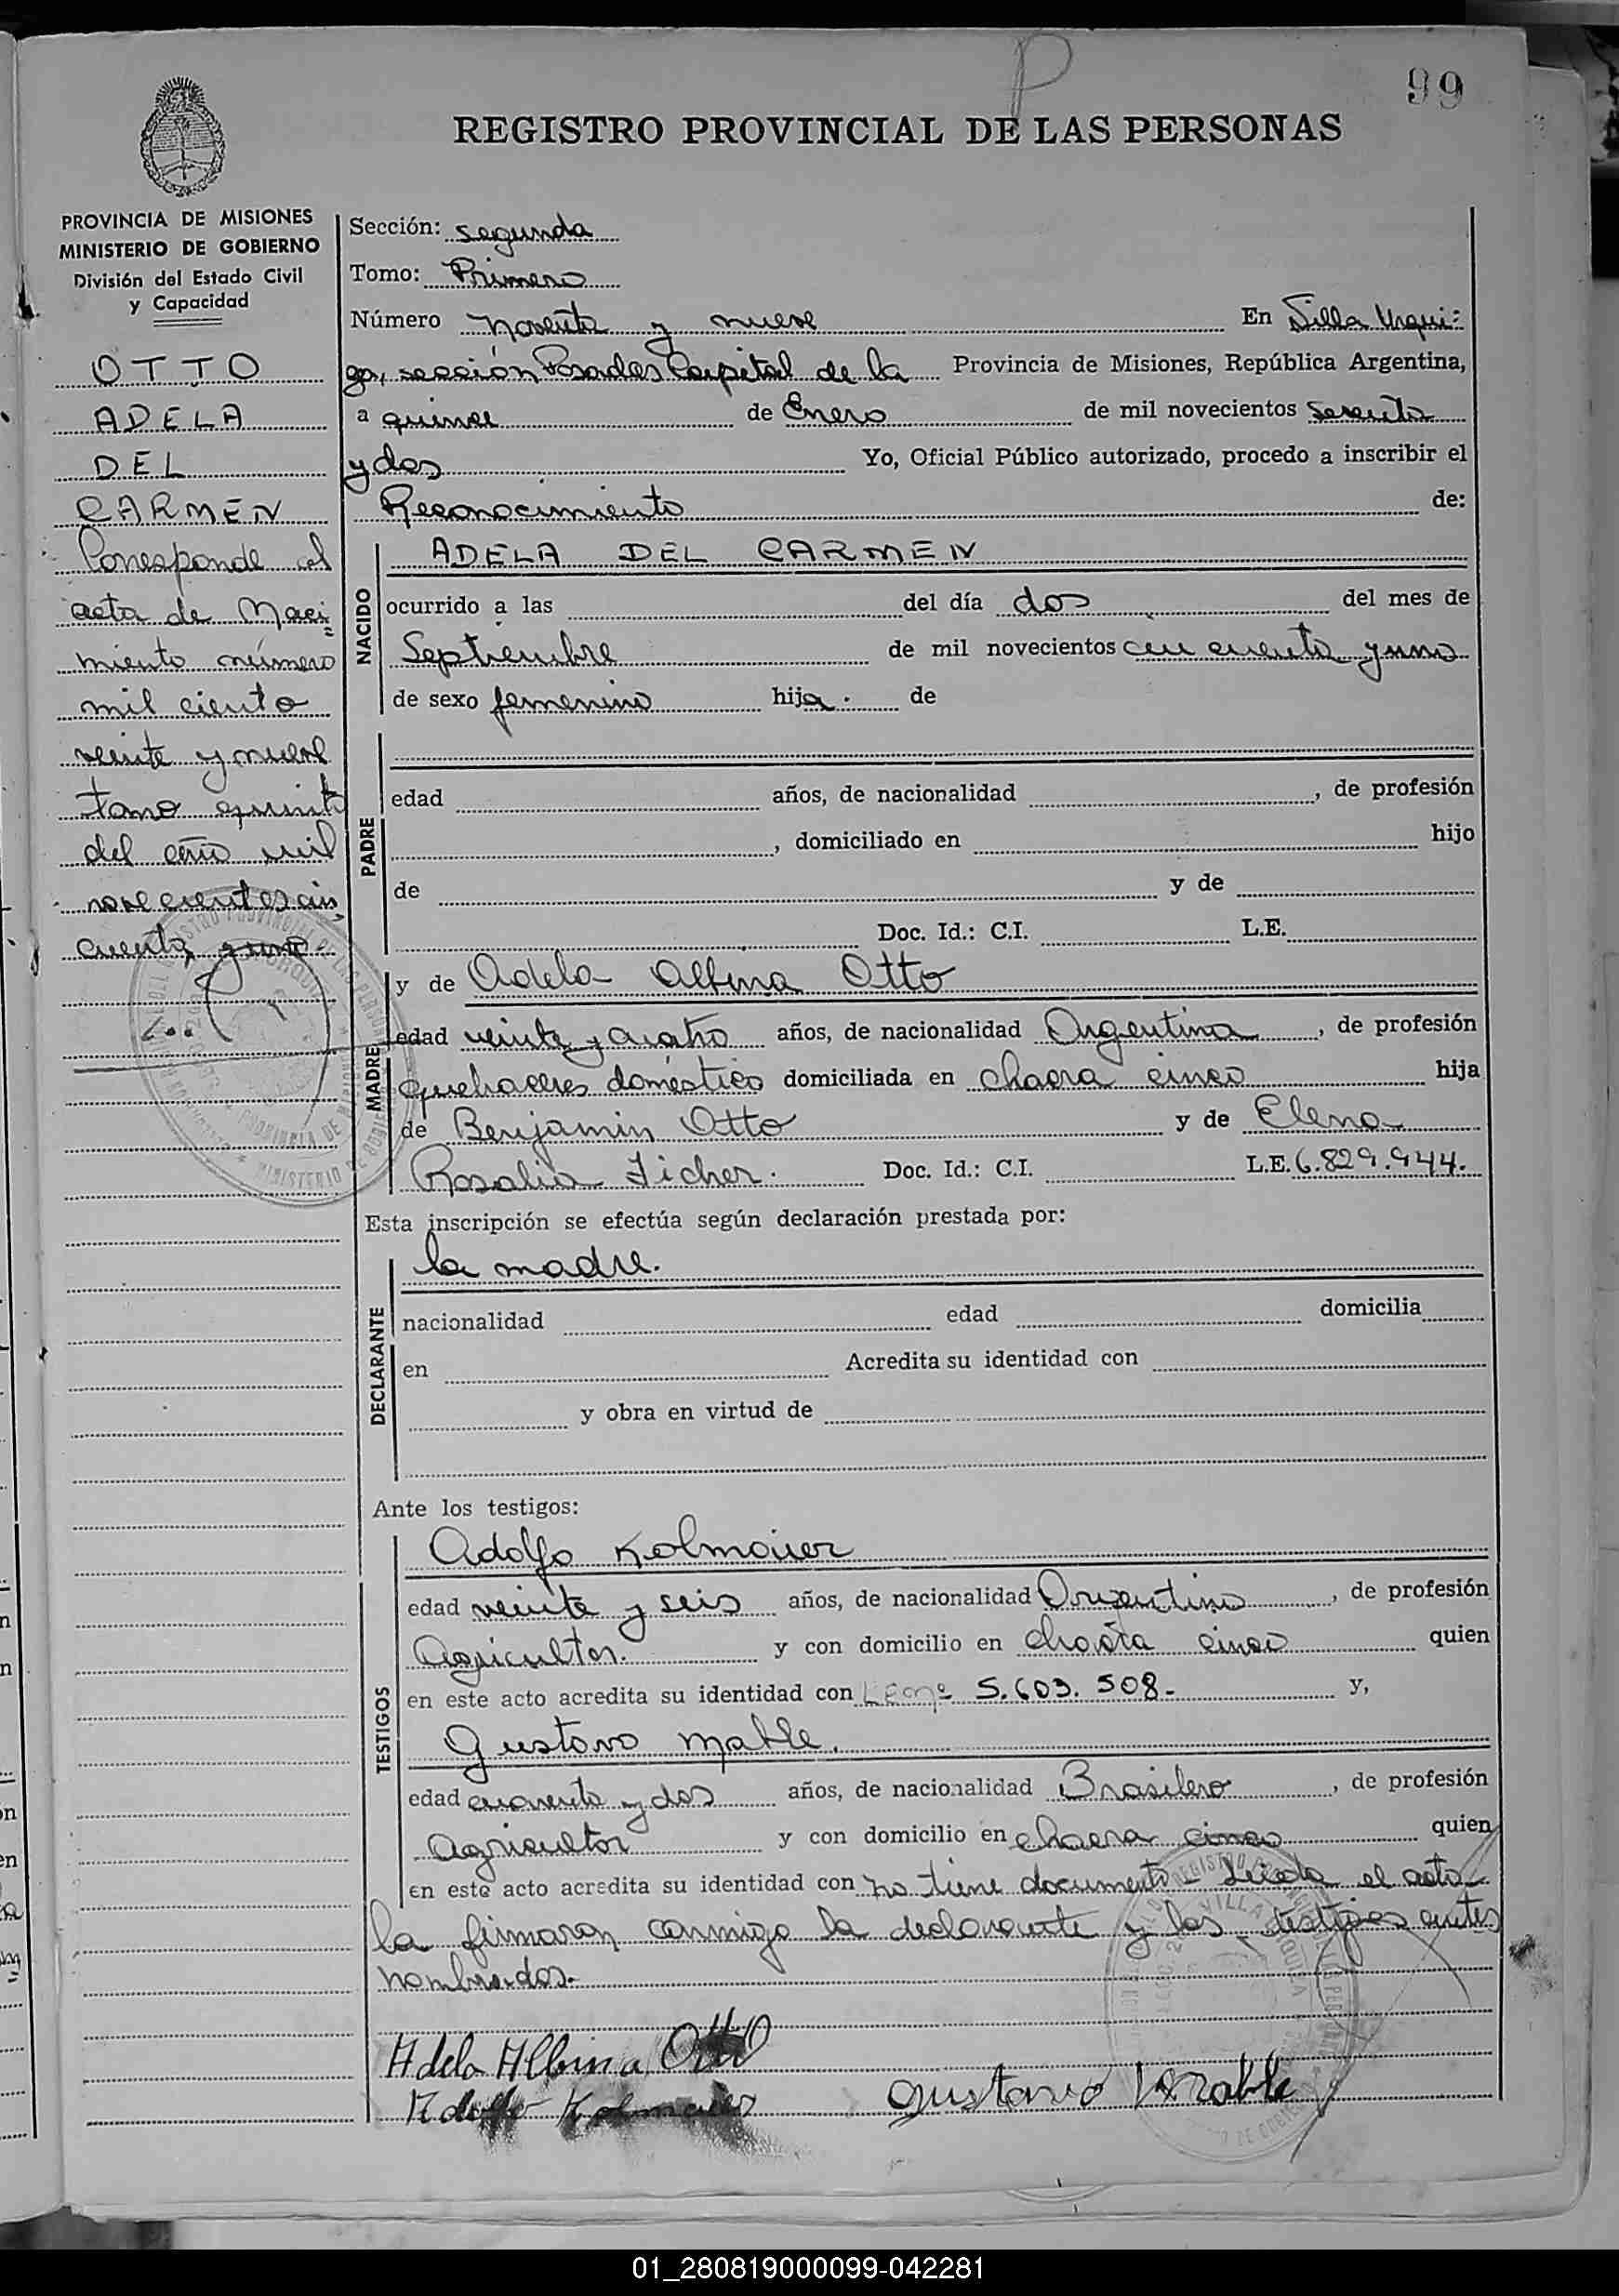 P
99
REGISTRO PROVINCIAL DE LAS PERSONAS
PROVINCIA DE MISIONES
MINISTERIO DE GOBIERNO
División del Estado Civil
y Capacidad
OTTO
ADELA
DEL
CARMEN
Corresponde al
acta de Naci
miento número
mil ciento
veinte y nueve
tomo quinto
del año mil
novecientos cin
cuenta y uno.
Sección: segunda
Tomo: Primero
Número noventa y nueve En Villa Urqui-
za, sección Posadas Capital de la Provincia de Misiones, República Argentina,
a quince de Enero de mil novecientos sesenta
y dos Yo, Oficial Público autorizado, procedo a inscribir el
Reconocimiento de:
NACIDO
ADELA DEL CARMEN
ocurrido a las del día dos del mes de
Septiembre de mil novecientos cincuenta y uno
de sexo femenino hija. de
PADRE
edad años, de nacionalidad , de profesión
, domiciliado en hijo
de y de
Doc. Id.: C.I. L.E.
MADRE
y de Adela Albina Otto
edad veinte y cuatro años, de nacionalidad Argentina , de profesión
quehaceres doméstico domiciliada en chacra cinco hija
de Benjamin Otto y de Elena
Rosalia Ficher. Doc. Id.: C.I. L.E. 6.829.944.
Esta inscripción se efectúa según declaración prestada por:
DECLARANTE
la madre.
nacionalidad edad domicilia
en Acredita su identidad con
y obra en virtud de
Ante los testigos:
TESTIGOS
Adolfo Kolmaier
edad veinte y seis años, de nacionalidad Argentino , de profesión
Agricultor. y con domicilio en chacra cinco quien
en este acto acredita su identidad con L E nº 5.603.508- y,
Gustavo Mable.
edad cuarenta y dos años, de nacionalidad Brasilero , de profesión
Agricultor y con domicilio en chacra cinco quien
en este acto acredita su identidad con no tiene documento - Leída el acta
la firmaron conmigo la declarante y los testigos antes
nombrados.-
Adela Albina Otto
Adolfo Kolmaier Gustavo
01_280819000099-042281